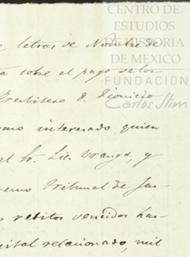 CENTRO DE
ESTUDIOS
DE HISTORIA
DE MEXICO
FUNDACIÓN
Carlos Slim
letras de
sobre el pago de los
Presbitero D. Dionicio
como interesado quien
al Sr. Lic. Uranga, y
Tribunal de Jus
reditos vencidos has
relacionado, mil